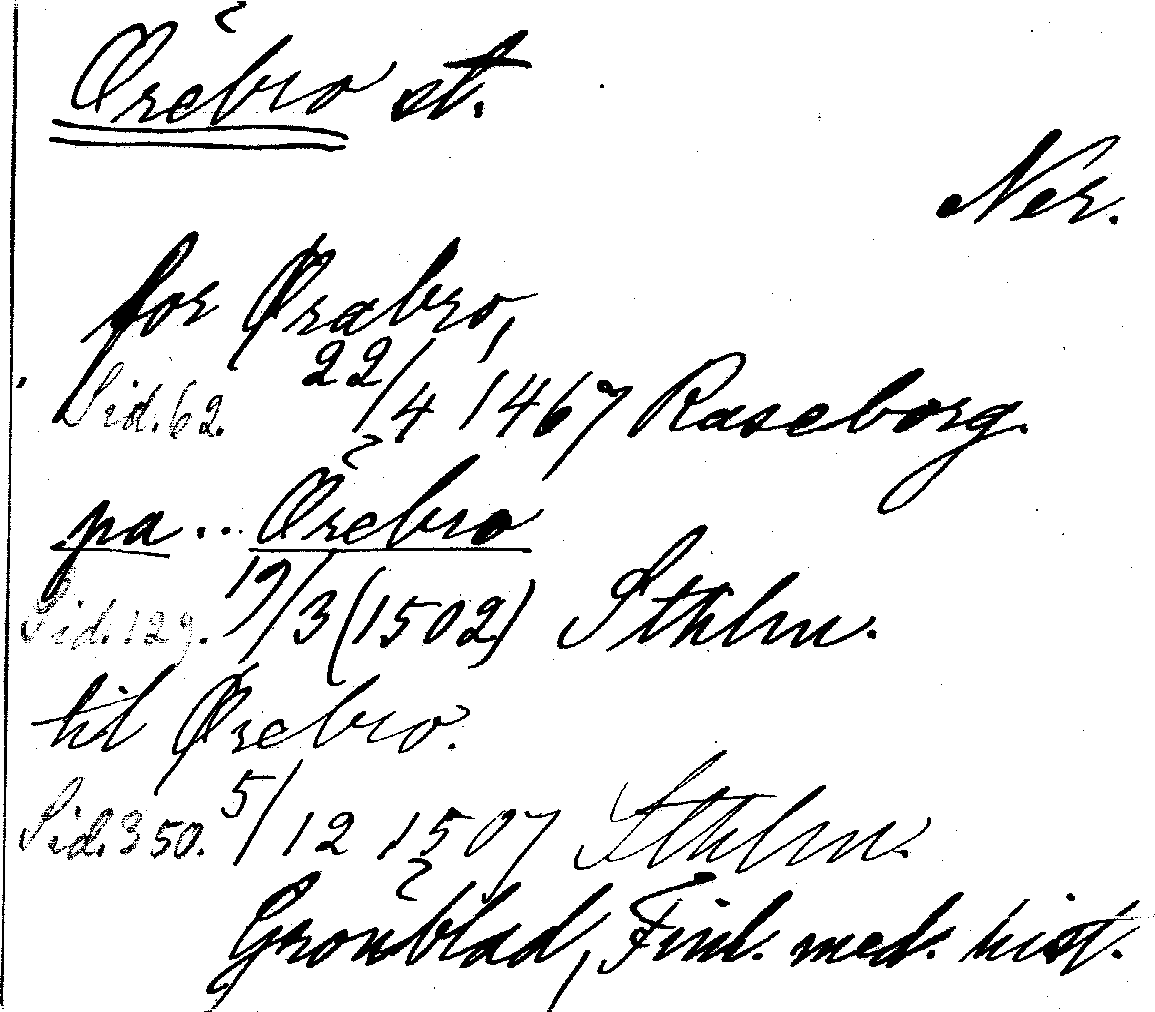 Örebro st.
Ner.
for Ørabro,
Sid. 62. 22/4 1467 Raseborg.
pa... Örebro
Sid. 129. 19/3 (1502) Sthlm.
til Ørebro.
Sid. 350. 5/12 1507 Sthlm.
Grönblad, Finl. med. hist.